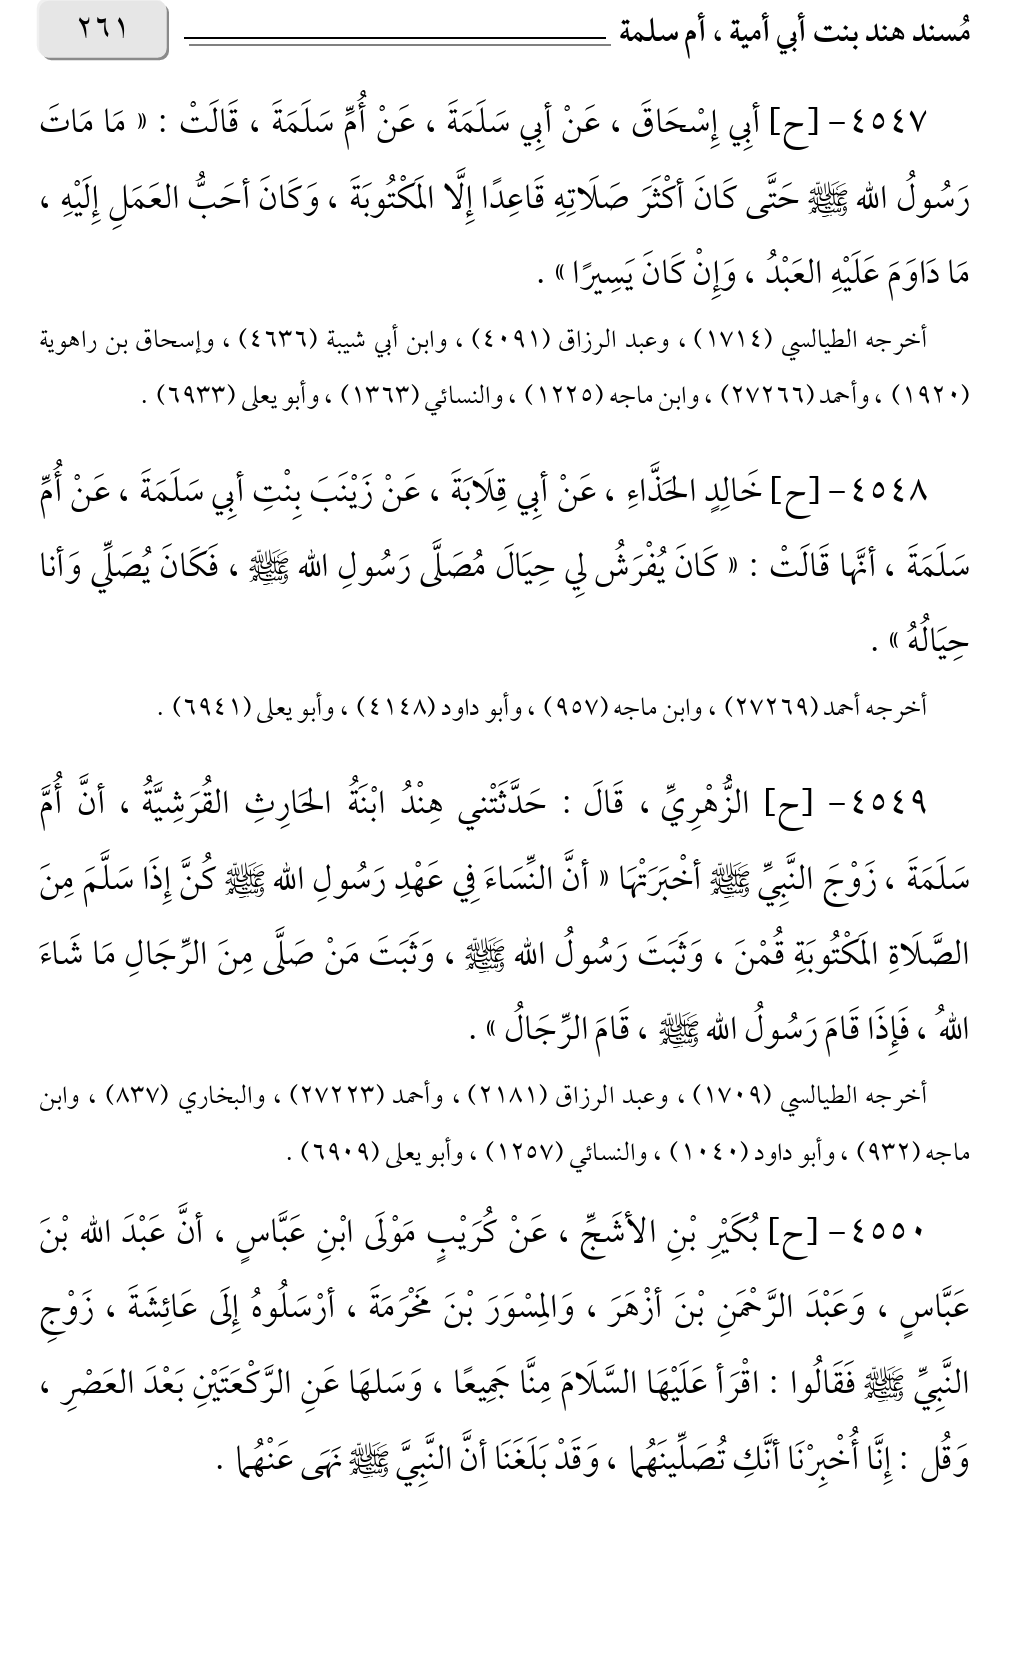 مُسند هند بنت أبي أمية ، أم سلمة ٢٦١
٤٥٤٧- [ح] أبِي إِسْحَاقَ ، عَنْ أبِي سَلَمَةَ ، عَنْ أُمِّ سَلَمَةَ ، قَالَتْ : « مَا مَاتَ
رَسُولُ الله ﷺ حَتَّى كَانَ أكْثَرَ صَلَاتِهِ قَاعِدًا إِلَّا المَكْتُوبَةَ ، وَكَانَ أحَبُّ العَمَلِ إِلَيْهِ ،
مَا دَاوَمَ عَلَيْهِ العَبْدُ ، وَإِنْ كَانَ يَسِيرًا » .
أخرجه الطيالسي (١٧١٤) ، وعبد الرزاق (٤٠٩١) ، وابن أبي شيبة (٤٦٣٦) ، وإسحاق بن راهوية
(١٩٢٠) ، وأحمد (٢٧٢٦٦) ، وابن ماجه (١٢٢٥) ، والنسائي (١٣٦٣) ، وأبو يعلى (٦٩٣٣) .
٤٥٤٨- [ح] خَالِدٍ الحَذَّاءِ ، عَنْ أبِي قِلَابَةَ ، عَنْ زَيْنَبَ بِنْتِ أبِي سَلَمَةَ ، عَنْ أُمِّ
سَلَمَةَ ، أنَّها قَالَتْ : « كَانَ يُفْرَشُ لِي حِيَالَ مُصَلَّى رَسُولِ الله ﷺ ، فَكَانَ يُصَلِّي وَأنا
حِيَالُهُ » .
أخرجه أحمد (٢٧٢٦٩) ، وابن ماجه (٩٥٧) ، وأبو داود (٤١٤٨) ، وأبو يعلى (٦٩٤١) .
٤٥٤٩- [ح] الزُّهْرِيِّ ، قَالَ : حَدَّثَتْني هِنْدُ ابْنَةُ الحَارِثِ القُرَشِيَّةُ ، أنَّ أُمَّ
سَلَمَةَ ، زَوْجَ النَّبِيِّ ﷺ أخْبَرَتْهَا « أنَّ النِّسَاءَ فِي عَهْدِ رَسُولِ الله ﷺ كُنَّ إِذَا سَلَّمَ مِنَ
الصَّلَاةِ المَكْتُوبَةِ قُمْنَ ، وَثَبَتَ رَسُولُ الله ﷺ ، وَثَبَتَ مَنْ صَلَّى مِنَ الرِّجَالِ مَا شَاءَ
اللهُ ، فَإِذَا قَامَ رَسُولُ الله ﷺ ، قَامَ الرِّجَالُ » .
أخرجه الطيالسي (١٧٠٩) ، وعبد الرزاق (٢١٨١) ، وأحمد (٢٧٢٢٣) ، والبخاري (٨٣٧) ، وابن
ماجه (٩٣٢) ، وأبو داود (١٠٤٠) ، والنسائي (١٢٥٧) ، وأبو يعلى (٦٩٠٩) .
٤٥٥٠- [ح] بُكَيْرِ بْنِ الأشَجِّ ، عَنْ كُرَيْبٍ مَوْلَى ابْنِ عَبَّاسٍ ، أنَّ عَبْدَ الله بْنَ
عَبَّاسٍ ، وَعَبْدَ الرَّحْمَنِ بْنَ أزْهَرَ ، وَالمِسْوَرَ بْنَ مَخْرَمَةَ ، أرْسَلُوهُ إِلَى عَائِشَةَ ، زَوْجِ
النَّبِيِّ ﷺ فَقَالُوا : اقْرَأ عَلَيْهَا السَّلَامَ مِنَّا جَمِيعًا ، وَسَلهَا عَنِ الرَّكْعَتَيْنِ بَعْدَ العَصْرِ ،
وَقُل : إِنَّا أُخْبِرْنَا أنَّكِ تُصَلِّينَهُما ، وَقَدْ بَلَغَنَا أنَّ النَّبِيَّ ﷺ نَهَى عَنْهُما .